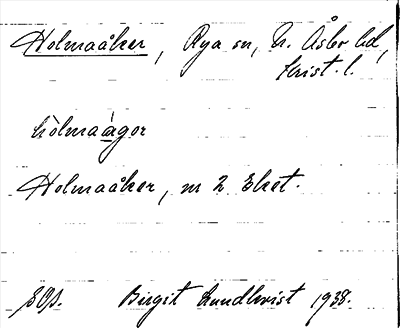 Holmaåker, Rya sn, N. Åsbo hd,
Krist. l.
hòlmaågor
Holmaåker, m 2 Eket.
Birgit Lundkvist 1938.